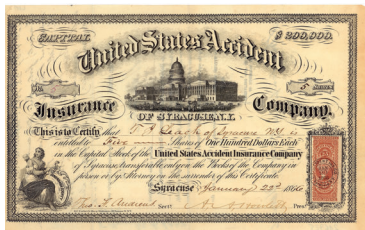 CAPITAL $200,000.
United States Accident
No. 5 Shares
Insurance Company.
OF SYRACUSE, N.Y.
This is to Certify that T. B. Leach of Syracuse N.Y. is
entitled to Five Shares of One Hundred Dollars Each
in the Capital Stock of the United States Accident Insurance Company
of Syracuse, transferable only on the Books of the Company in
person or by Attorney on the surrender of this Certificate.
Syracuse January 22d 1866
Secy. Pres.